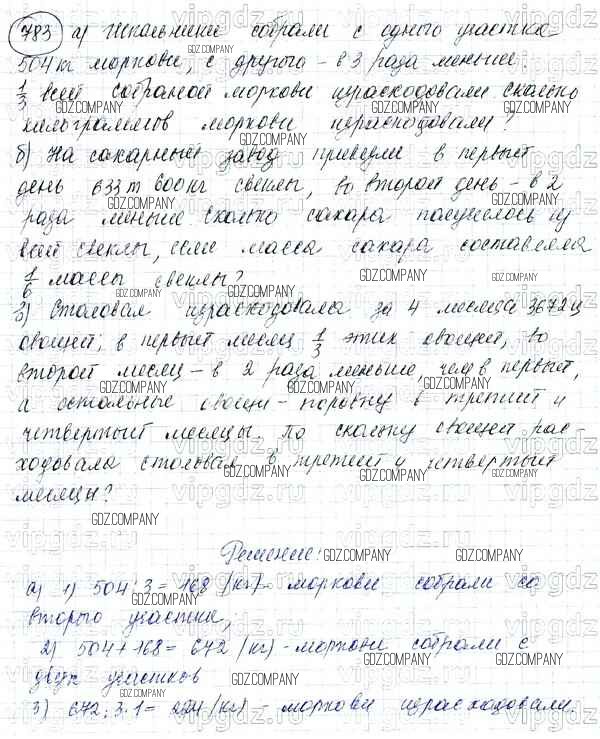 783 а) Школьники собрали с одного участка
504 кг моркови, с другого - в 3 раза меньше.
1/3 всей собраной моркови израсходовали. Сколько
килограммов моркови израсходовали?
б) На сахарный завод привезли в первый
день 633 т 600 кг свеклы, во второй день - в 2
раза меньше. Сколько сахара получилось из
всей свеклы, если масса сахара составляла
1/6 массы свеклы?
Столовая израсходовала за 4 месяца 3672 ц
овощей; в первый месяц 1/3 этих овощей, во
второй месяц - в 2 раза меньше, чем в первый,
а остальные овощи - поровну в третий и
четвертый месяцы. По скольку овощей рас-
ходовала столовая в третий и четвертый
месяцы?
Решение:
а) 1) 504 : 3 = 168 (кг) - моркови собрали со
второго участка,
2) 504 + 168 = 672 (кг) - моркови собрали с
двух участков
3) 672 : 3 · 1 = 224 (кг) - моркови израсходовали.
GDZ.COMPANY
vipgdz.ru